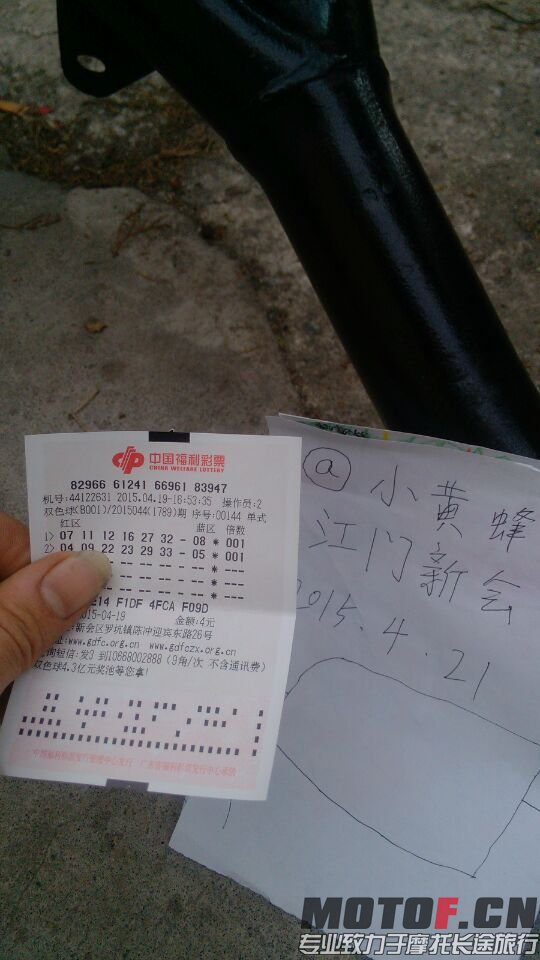 中国福利彩票
CHINA WELFARE LOTTERY
82966 61241 66961 83947
机号:44122631 2015.04.19-16:53:35 操作员:2
双色球(B001)/2015044(1789)期 序号:00144 单式
红区 蓝区 倍数
1> 07 11 12 16 27 32 - 08 * 001
2> 04 09 22 23 29 33 - 05 * 001
-- -- - -- * ---
-- -- - -- * ---
-- - -- * ---
E14 F1DF 4FCA F09D
2015-04-19 金额:4元
新会区罗坑镇陈冲迎宾东路26号
www.gdfc.org.cn www.gdfczx.org.cn
询短信:发3 到10668002888 (9角/次 不含通讯费)
双色球4.3亿元奖池等您拿!
中国福利彩票发行管理中心发行 广东省福利彩票发行中心承销
a 小黄蜂
江门新会
2015.4.21
MOTOF.CN
专业致力于摩托长途旅行